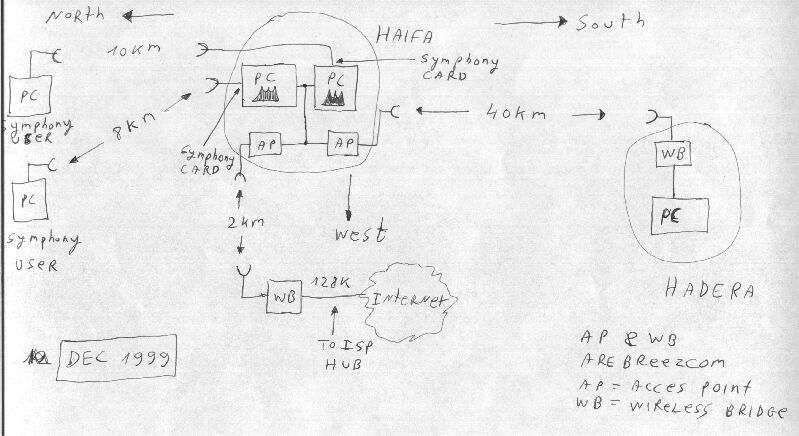 NORTH
SOUTH
10KM
HAIFA
SYMPHONY
CARD
PC
PC
PC
SYMPHONY
USER
8KM
40KM
SYMPHONY
CARD
AP
AP
WB
PC
SYMPHONY
USER
2KM
WEST
PC
HADERA
WB
128K
INTERNET
TO ISP
HUB
DEC 1999
AP & WB
ARE BREEZCOM
AP = ACCES POINT
WB = WIRELESS BRIDGE